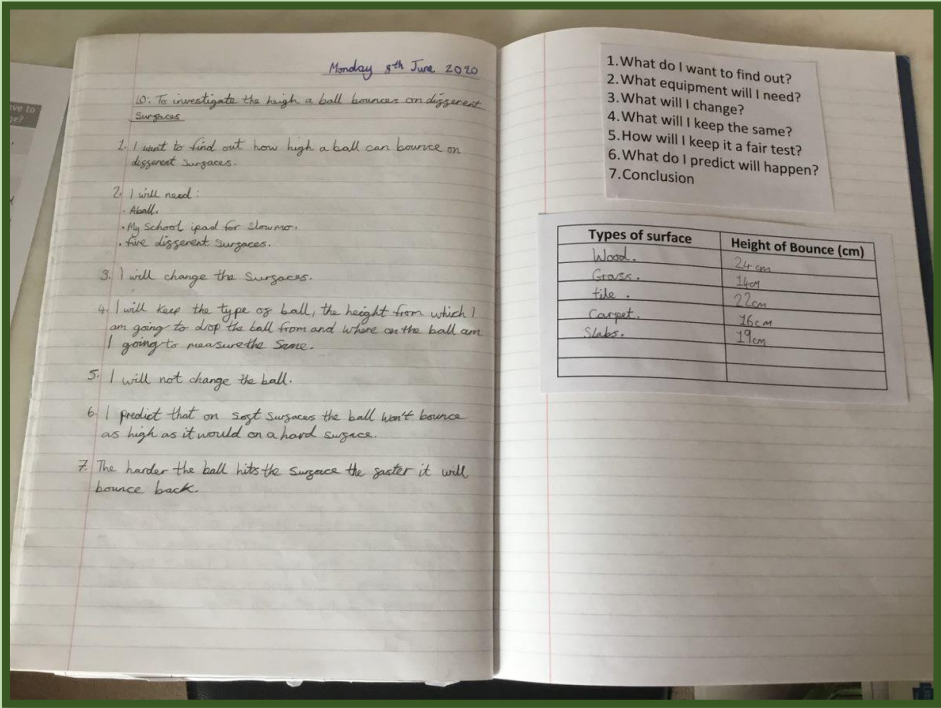 Monday 8th June 2020
LO: To investigate the heigh a ball bounces on different
surfaces
1. I want to find out how high a ball can bounce on
different surfaces.
2. I will need:
• A ball.
• My school ipad for slowmo.
• five different surfaces.
3. I will change the surfaces.
4. I will keep the type of ball, the height from which I
am going to drop the ball from and where on the ball am
I going to measure the same.
5. I will not change the ball.
6. I predict that on soft surfaces the ball won't bounce
as high as it would on a hard surface.
7. The harder the ball hits the surface the faster it will
bounce back.
1. What do I want to find out?
2. What equipment will I need?
3. What will I change?
4. What will I keep the same?
5. How will I keep it a fair test?
6. What do I predict will happen?
7. Conclusion
Types of surface Height of Bounce (cm)
Wood. 24cm
Grass. 14cm
tile. 22cm
Carpet. 16cm
Slabs. 19cm